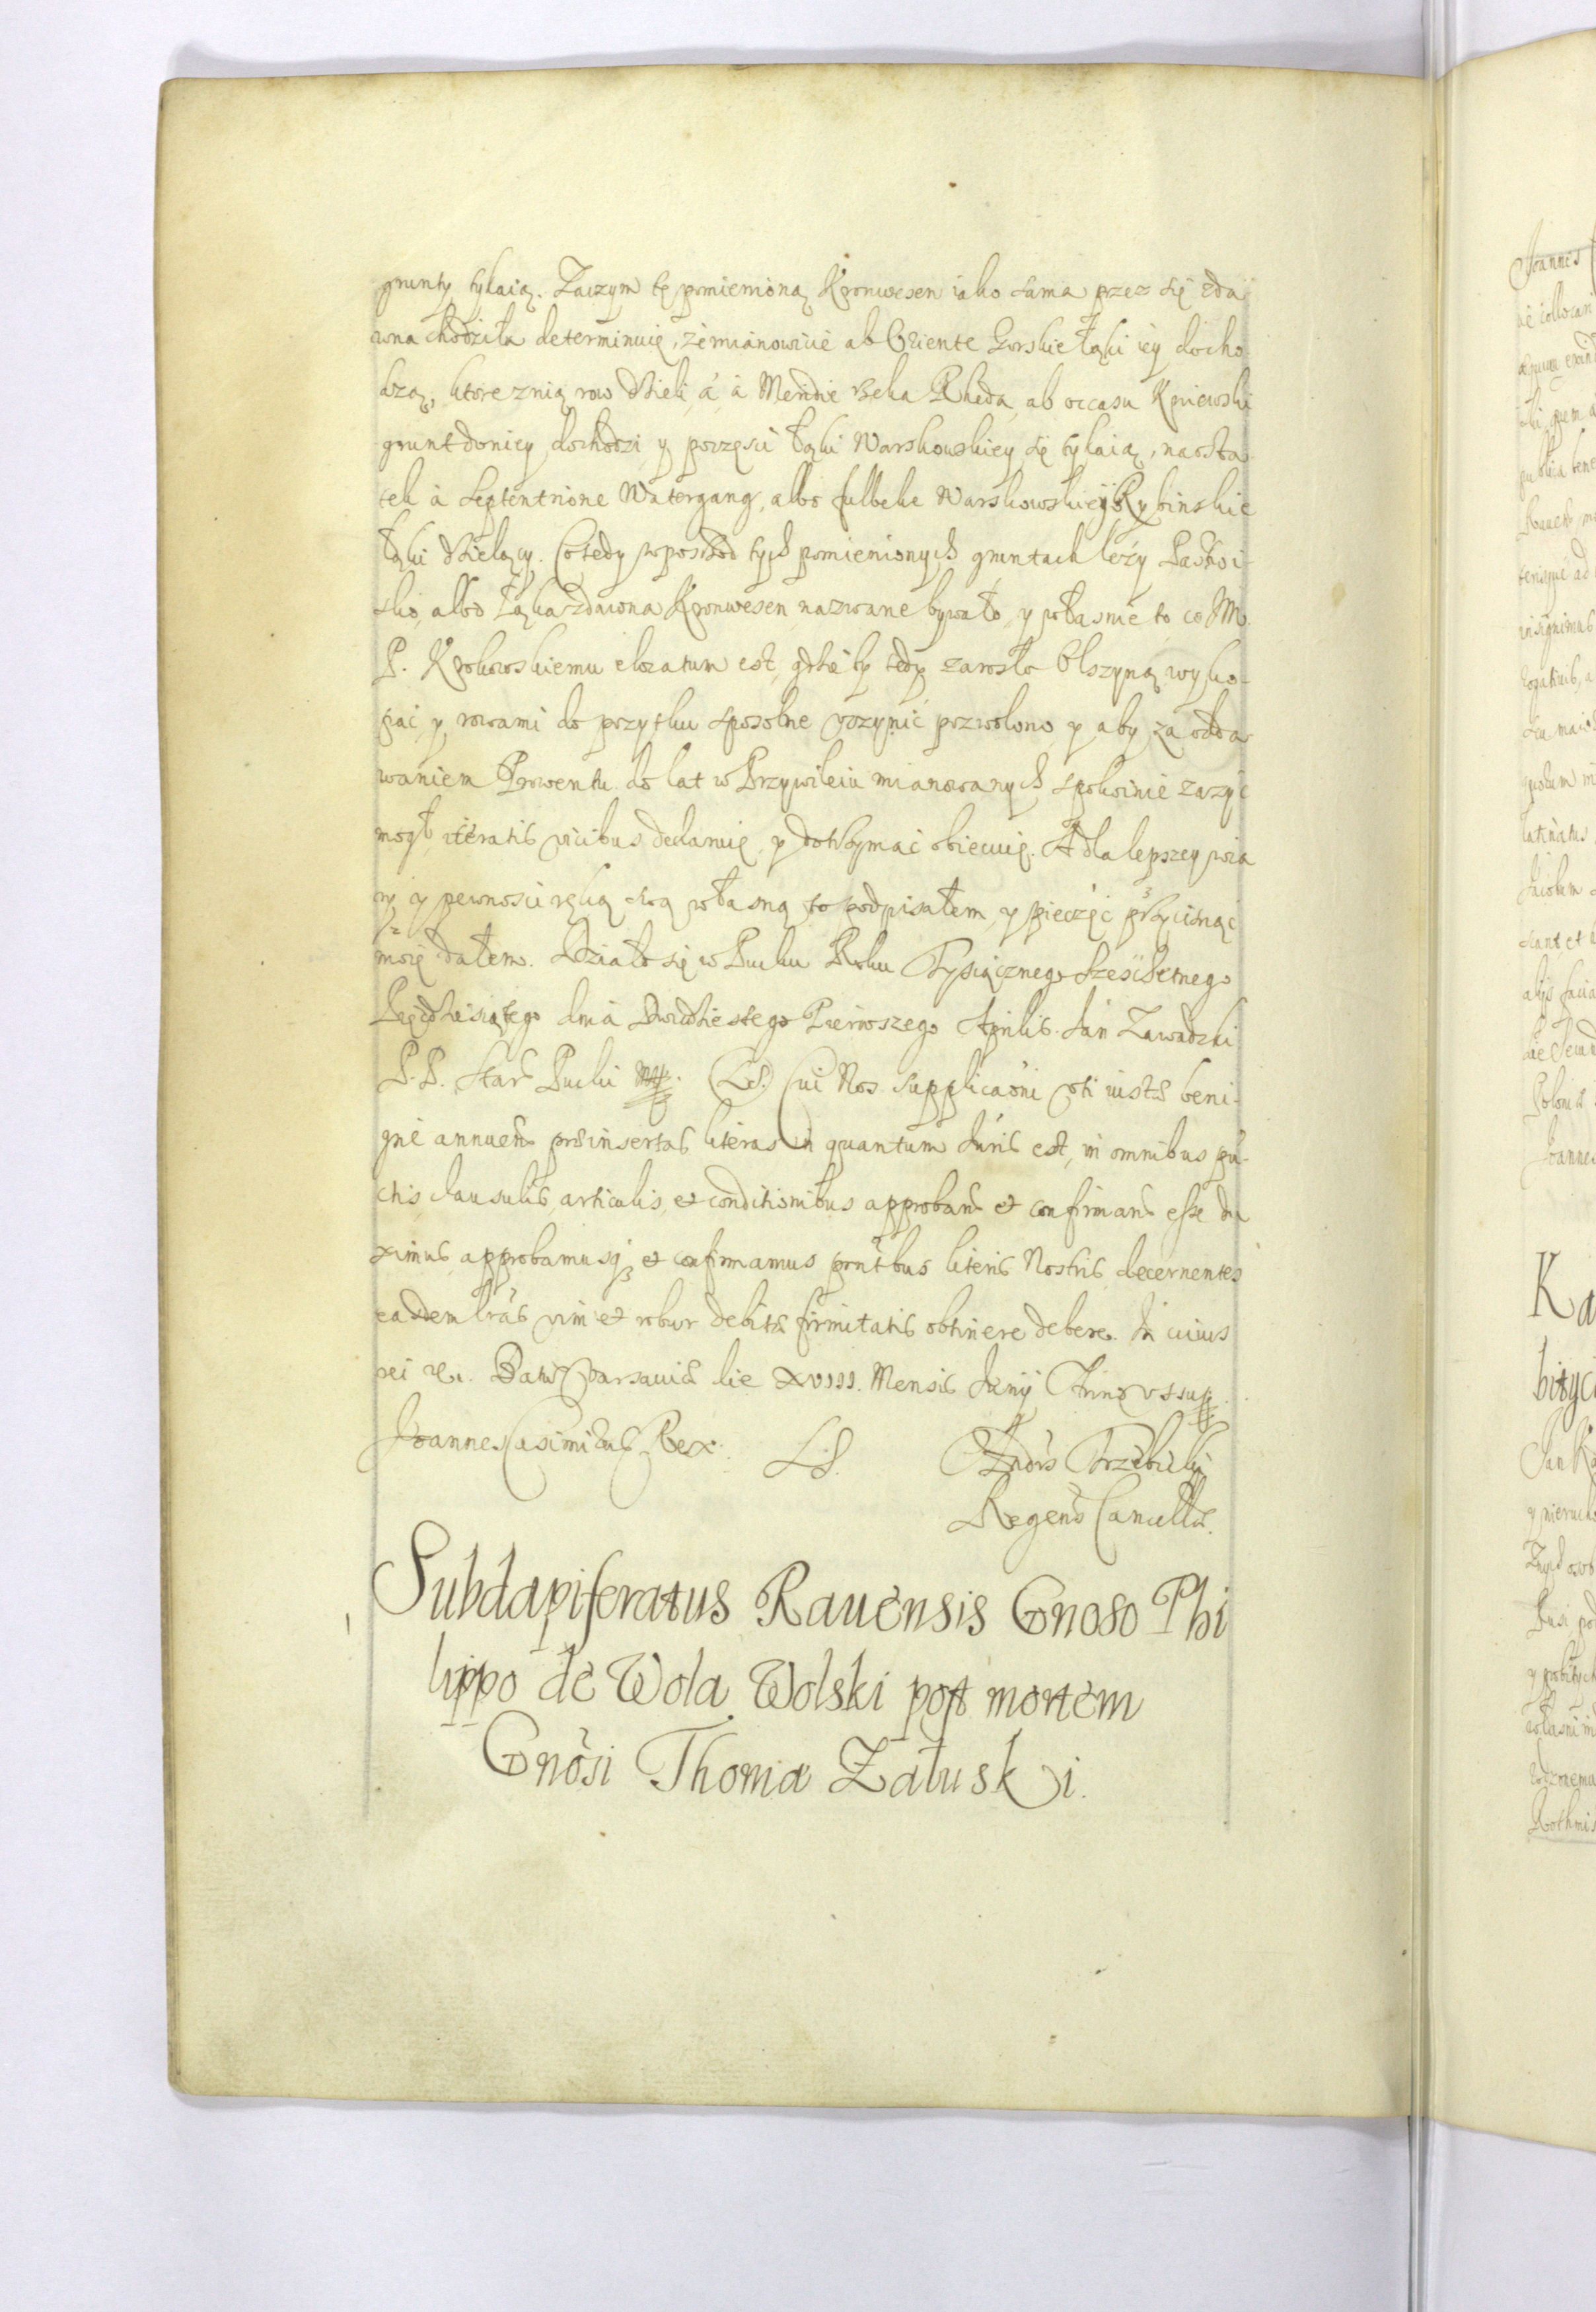 grunty tykaią. Zaczym tę pomienioną Kronwesen iako sama przez się zda
wna chodziła determinuię, że mianowicie ab Oriente Gorskie łąki iey docho
dzą, ktore znią row dzieli, á á Meridie Rzeka Rheda, ab occasu Kniewski
grunt doniey dochodzi y poczęsci łąki Warskowskiey się tykaią, naosta
tek á Septentrione Watergang, albo fulbeke Warskowskiey y Rybinskie
łąki dzielący. Co tedy wposrzod tych pomienionych gruntach leży Pastwi-
sko, albo Łąka zdawna Kronwesen nazwane bywało, y własnie to co M.
P. Krokowskiemu elocatum est, gdzie by tedy zarosło Olszyną, wyko-
pać y rowami do pożytku sposobne uczynić pozwolono, y aby za odda
waniem Prowentu do lat w Przywileiu mianowanych spokoinie zazyć
mogł iteratis vicibus declaruię, y dotrzymać obiecuię. A dla lepszey wia
ry y pewnosci ręką swą własną to podpisałem, y pieczęć przycisnąć
moię dałem. Działo się w Pucku Roku Tysiącznego Sześćsetnego
Pięćdziesiątego dnia Dwudziestego Pierwszego Aprilis. Jan Zawadzki
P. P. Star Pucki mp. (L.S.) Cui Nos supplicaõni uti iustæ beni-
gnè annuen̄ præinsertas literas in quantum Juris est, in omnibus pũ-
ctis, clausulis, articulis, et conditionibus approband̄ et confirmand̄ esse du
ximus, approbamusq; et confirmamus pn̄tibus literis Nostris decernentes
easdem lrãs vim et robur debitæ firmitatis obtinere debere. In cuius
rei &c. Datū Varsaviæ die XVIII. Mensis Junij Anno ut sup.
Joannes Casimirus Rex. L.S. Andrs Trzebicki
Regens Cancellæ.
Subdapiferatus Rauensis Gnoso Phi
lippo de Wola Wolski post mortem
Gnosi Thomæ Załuski.